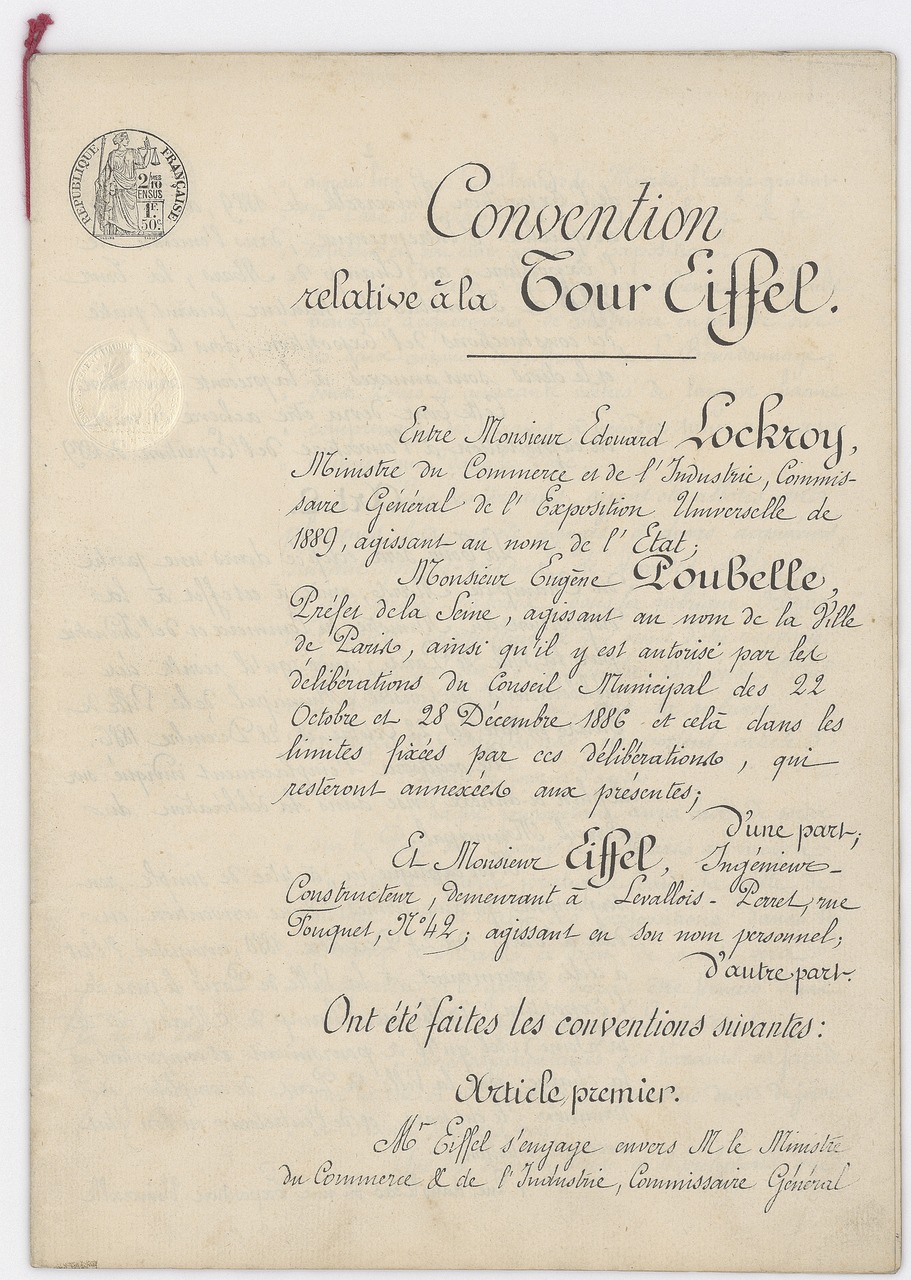 RÉPUBLIQUE FRANÇAISE
2/10 EN SUS
1F 50c
Convention
relative à la Tour Eiffel.
Entre Monsieur Edouard Lockroy,
Ministre du Commerce et de l'Industrie, Commis-
saire Général de l'Exposition Universelle de
1889, agissant au nom de l'Etat;
Monsieur Eugène Poubelle,
Préfet de la Seine, agissant au nom de la Ville
de Paris, ainsi qu'il y est autorisé par les
délibérations du Conseil Municipal des 22
Octobre et 28 Décembre 1886 et celà dans les
limites fixées par ces délibérations, qui
resteront annexées aux présentes;
d'une part;
Et Monsieur Eiffel, Ingénieur-
Constructeur, demeurant à Levallois-Perret, rue
Fouquet, N° 42; agissant en son nom personnel;
d'autre part.
Ont été faites les conventions suivantes:
Article premier.
Mr Eiffel s'engage envers M le Ministre
du Commerce & de l'Industrie, Commissaire Général